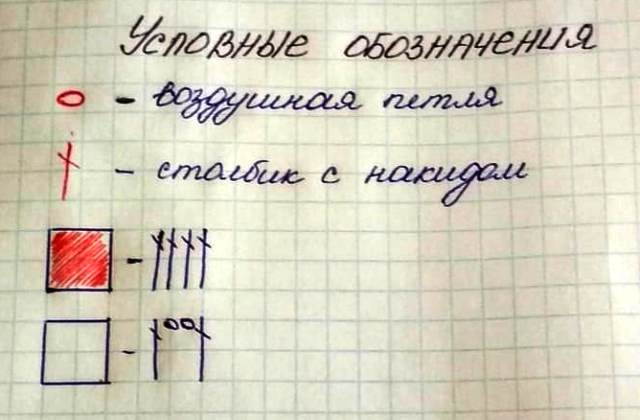 Условные обозначения
- воздушная петля
- столбик с накидом